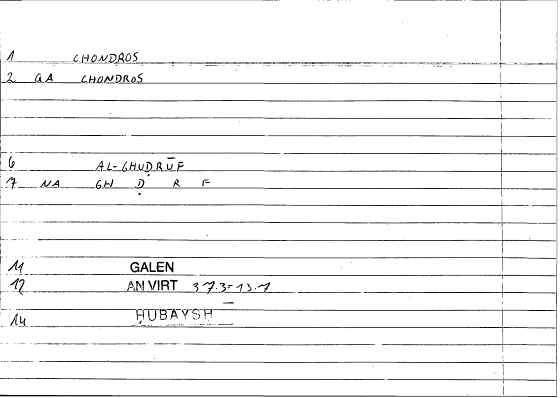 1 CHONDROS
2 GA CHONDROS
6 AL-GHUḌRŪF
7 NA GH Ḍ R F
11 GALEN
12 AN VIRT 37.3-13.1
14 ḤUBAYSH